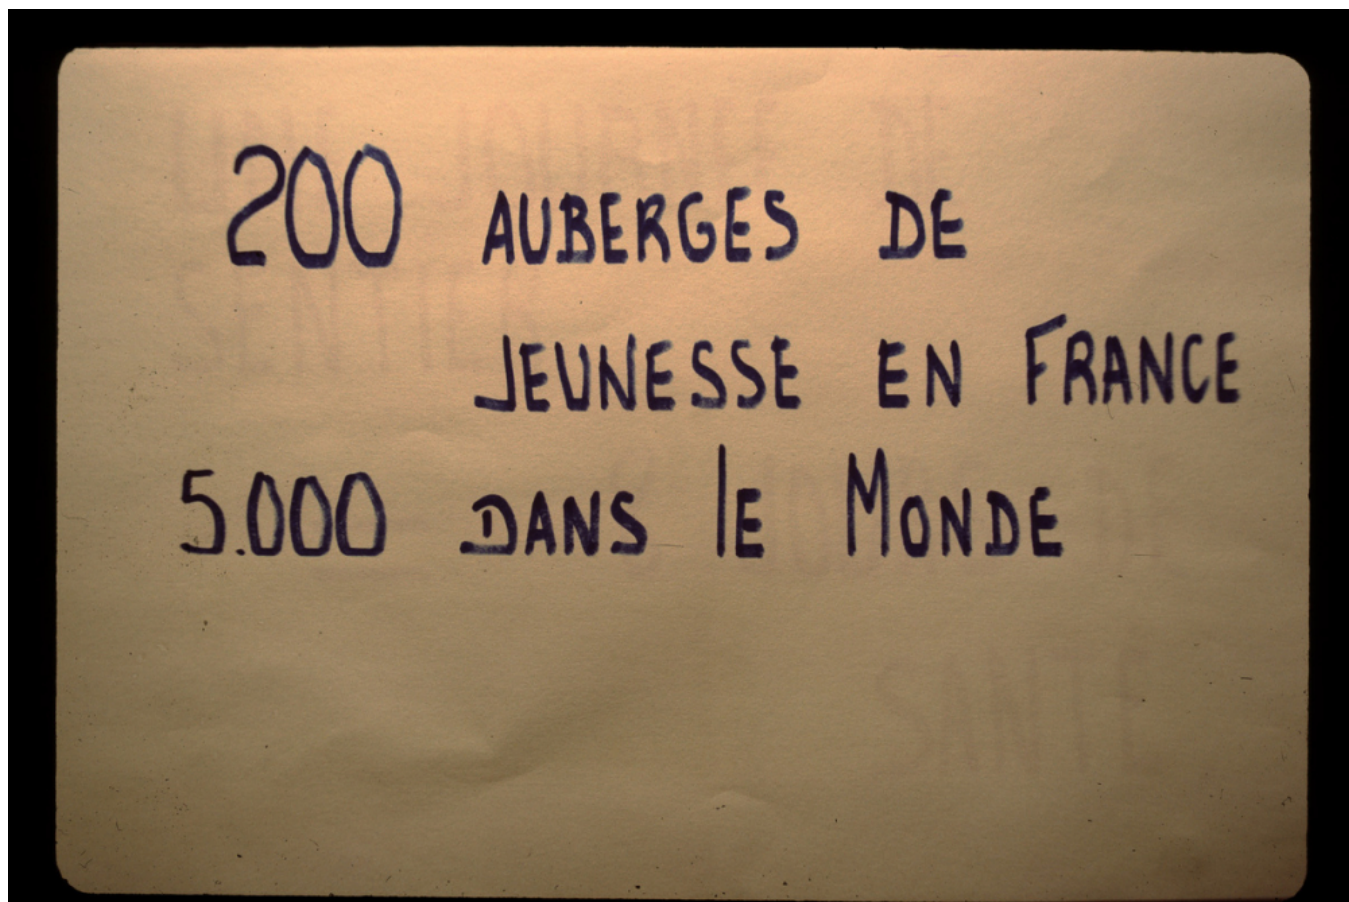 200 AUBERGES DE
JEUNESSE EN FRANCE
5.000 DANS lE MONDE